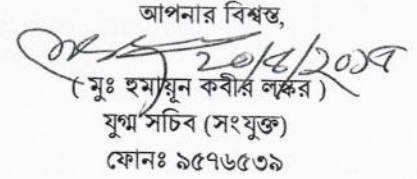 আপনার বিশ্বস্ত,
২০/৪/২০১৭
( মুঃ হুমায়ূন কবীর লস্কর )
যুগ্ম সচিব (সংযুক্ত)
ফোনঃ ৯৫৭৬৫৩৯